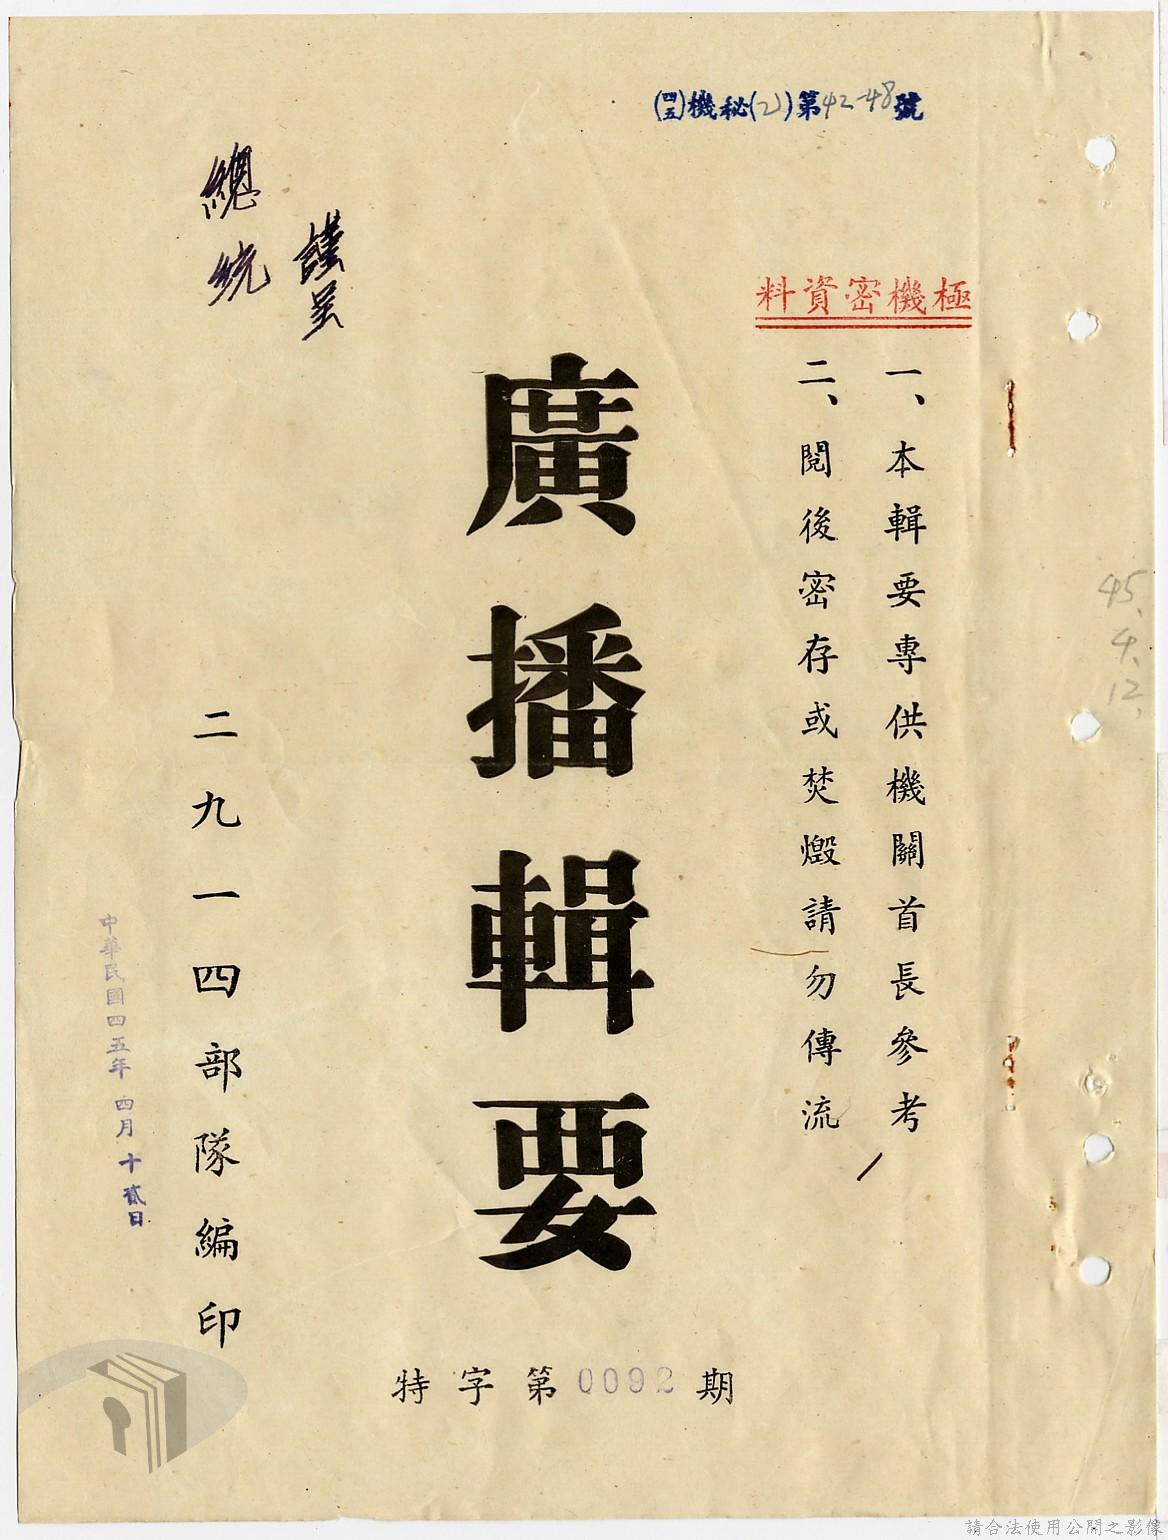 (四五)機秘(乙)第42-48號
極機密資料
一、本輯要專供機關首長參考
二、閱後密存或焚燬請勿傳流
廣播輯要
謹呈
總統
二九一四部隊編印
中華民國四五年四月十貳日
特字第0092期
45.4.12.
請合法使用公開之影像